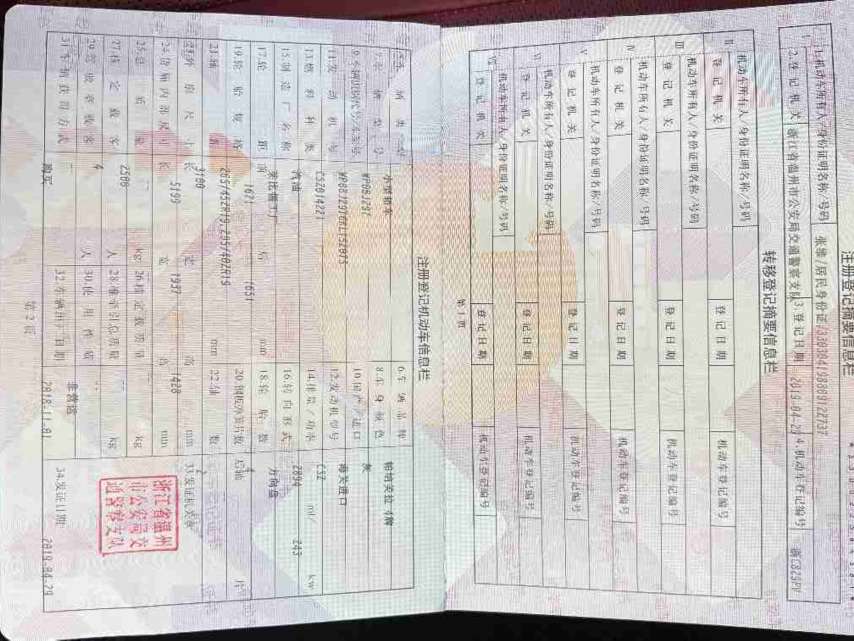 注册登记摘要信息栏
1.机动车所有人/身份证明名称/号码
2.登记机关 浙江省温州市公安局交通警察支队 3.登记日期 2019-04-29 4.机动车登记编号
转移登记摘要信息栏
机动车所有人/身份证明名称/号码
II 登记机关 登记日期 机动车登记编号
机动车所有人/身份证明名称/号码
III 登记机关 登记日期 机动车登记编号
机动车所有人/身份证明名称/号码
IV 登记机关 登记日期 机动车登记编号
机动车所有人/身份证明名称/号码
V 登记机关 登记日期 机动车登记编号
机动车所有人/身份证明名称/号码
VI 登记机关 登记日期 机动车登记编号
机动车所有人/身份证明名称/号码
VII 登记机关 登记日期 机动车登记编号
第1页
注册登记机动车信息栏
小型轿车 6.车辆品牌
7.车辆型号 8.车身颜色 灰
9.车辆识别代号/车架号 10.国产/进口 海关进口
11.发动机号 12.发动机型号
13.燃料种类 汽油 14.排量/功率 2894 ml/ 243 kw
15.制造厂名称 莱比锡工厂 16.转向形式 方向盘
17.轮距 前 1671 后 1651 mm 18.轮胎数 4
19.轮胎规格 265/45ZR19;295/40ZR19 20.钢板弹簧片数 后轴 片
21.轴距 mm 22.轴数 2
长 5199 宽 1937 高 1428 mm 33.发证机关章
24.货厢内部尺寸 长 宽 高 mm
25.总质量 2580 kg 26.核定载质量 kg
27.核定载客 4 人 28.准牵引总质量 kg
29.驾驶室载客 人 30.使用性质 非营运
31.车辆获得方式 购买 32.车辆出厂日期 2018-11-01 34.发证日期 2019-04-29
浙江省温州
市公安局交
通警察支队
第2页